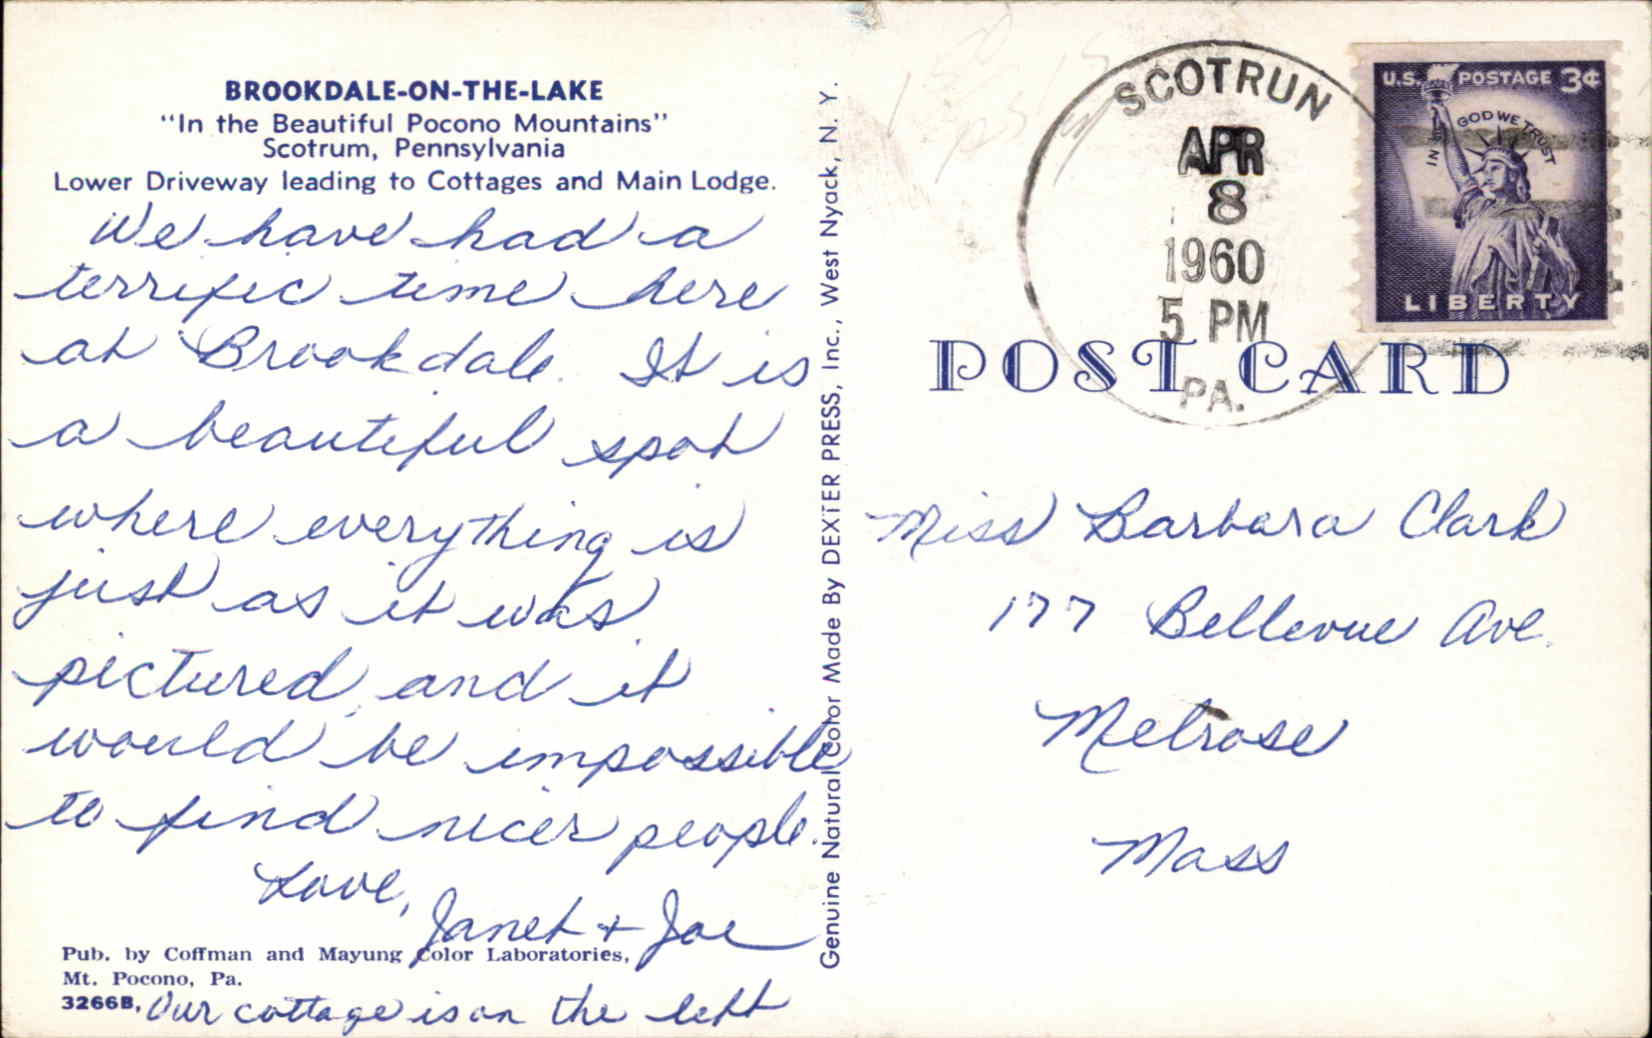 BROOKDALE-ON-THE-LAKE
"In the Beautiful Pocono Mountains"
Scotrum, Pennsylvania
Lower Driveway leading to Cottages and Main Lodge.
We have had a
terrific time here
at Brookdale. It is
a beautiful spot
where everything is
just as it was
pictured, and it
would be impossible
to find nicer people.
Love,
Janet + Joe
Pub. by Coffman and Mayung Color Laboratories,
Mt. Pocono, Pa.
3266B.
Our cottage is on the left
Genuine Natural Color Made By DEXTER PRESS, Inc., West Nyack, N. Y.
SCOTRUN
APR
8
1960
5 PM
PA.
U.S. POSTAGE 3¢
IN GOD WE TRUST
LIBERTY
POST CARD
Miss Barbara Clark
177 Bellevue Ave.
Melrose
Mass